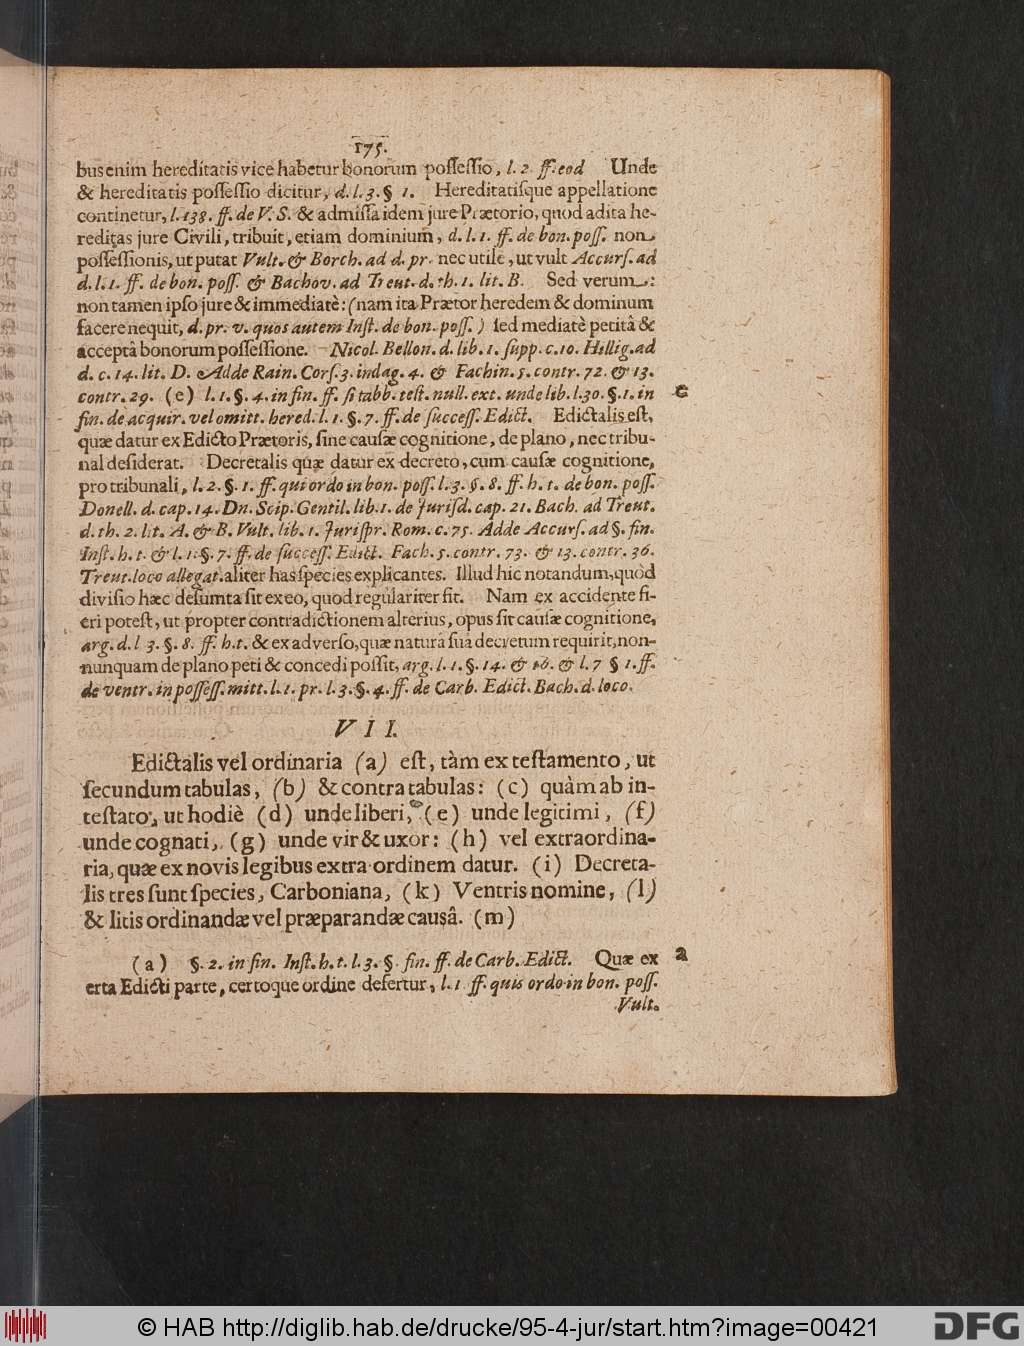 175.
bus enim hereditatis vice habetur bonorum poſſeſſio, l. 2. ff. eod Unde
& hereditatis poſſeſſio dicitur, d. l. 3. § 1. Hereditatiſque appellatione
continetur, l. 138. ff. de V. S. & admiſſa idem jure Prætorio, quod adita he-
reditas jure Civili, tribuit, etiam dominium, d. l. 1. ff. de bon. poſſ. non
poſſeſſionis, ut putat Vult. & Borch. ad d. pr. nec utile, ut vult Accurſ. ad
d. l. 1. ff. de bon. poſſ. & Bachov. ad Treut. d. th. 1. lit. B. Sed verum:
non tamen ipſo jure & immediatè: (nam ita Prætor heredem & dominum
facere nequit, d. pr. v. quos autem Inſt. de bon. poſſ.) ſed mediatè petitâ &
acceptâ bonorum poſſeſſione. Nicol. Bellon. d. lib. 1. ſupp. c. 10. Hillig. ad
d. c. 14. lit. D. Adde Rain. Corſ. 3. indag. 4. & Fachin. 5. contr. 72. & 13.
contr. 29. (e) l. 1. §. 4. in fin. ff. ſi tabb. teſt. null. ext. unde lib. l. 30. §. 1. in e
fin. de acquir. vel omitt. hered. l. 1. §. 7. ff. de ſucceſſ. Edict. Edictalis eſt,
quæ datur ex Edicto Prætoris, ſine cauſæ cognitione, de plano, nec tribu-
nal deſiderat. Decretalis quæ datur ex decreto, cum cauſæ cognitione,
pro tribunali, l. 2. §. 1. ff. qui ordo in bon. poſſ. l. 3. §. 8. ff. h. t. de bon. poſſ.
Donell. d. cap. 14. Dn. Scip. Gentil. lib. 1. de Juriſd. cap. 21. Bach. ad Treut.
d. th. 2. lit. A. & B. Vult. lib. 1. Juriſpr. Rom. c. 75. Adde Accurſ. ad §. fin.
Inſt. h. t. & l. 1. §. 7. ff. de ſucceſſ. Edict. Fach. 5. contr. 73. & 13. contr. 36.
Treut. loco allegat. aliter has ſpecies explicantes. Illud hic notandum, quòd
diviſio hæc deſumta ſit ex eo, quod regulariter fit. Nam ex accidente fi-
eri poteſt, ut propter contradictionem alterius, opus ſit cauſæ cognitione,
arg. d. l 3. §. 8. ff. h. t. & ex adverſo, quæ naturâ ſuâ decretum requirit, non-
nunquam de plano peti & concedi poſſit, arg. l. 1. §. 14. & 16. & l. 7 § 1. ff.
de ventr. in poſſeſſ. mitt. l. 1. pr. l. 3. §. 4. ff. de Carb. Edict. Bach. d. loco.
VII.
Edictalis vel ordinaria (a) eſt, tàm ex teſtamento, ut
ſecundum tabulas, (b) & contra tabulas: (c) quàm ab in-
teſtato, ut hodiè (d) unde liberi, (e) unde legitimi, (f)
unde cognati, (g) unde vir & uxor: (h) vel extraordina-
ria, quæ ex novis legibus extra ordinem datur. (i) Decreta-
lis tres ſunt ſpecies, Carboniana, (k) Ventris nomine, (l)
& litis ordinandæ vel præparandæ cauſâ. (m)
(a) §. 2. in fin. Inſt. h. t. l. 3. §. fin. ff. de Carb. Edict. Quæ ex a
certa Edicti parte, certoque ordine defertur, l. 1 ff. quis ordo in bon. poſſ.
Vult.
© HAB http://diglib.hab.de/drucke/95-4-jur/start.htm?image=00421
DFG